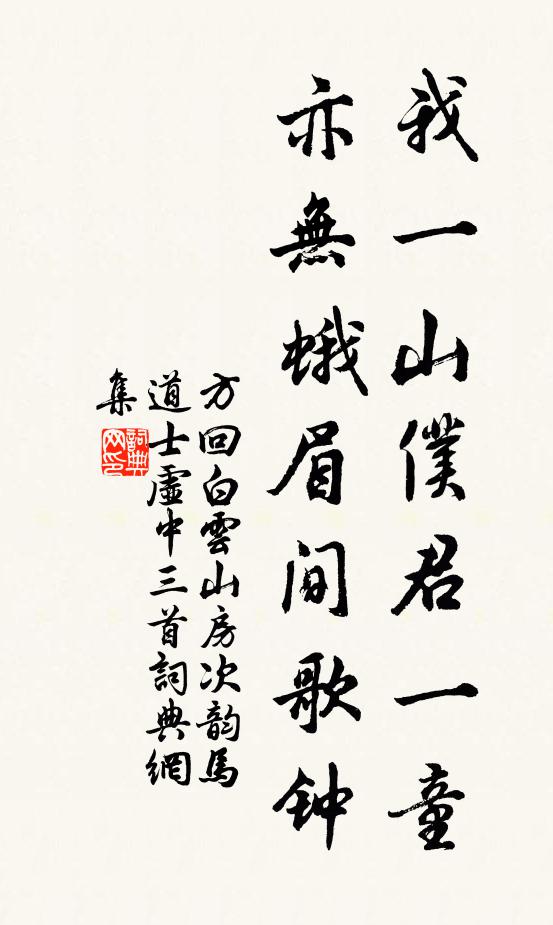 我一山僕君一童
亦無蛾眉间歌钟
方回白雲山房次韵馬
道士虛中三首詞典網
集
詞典网印